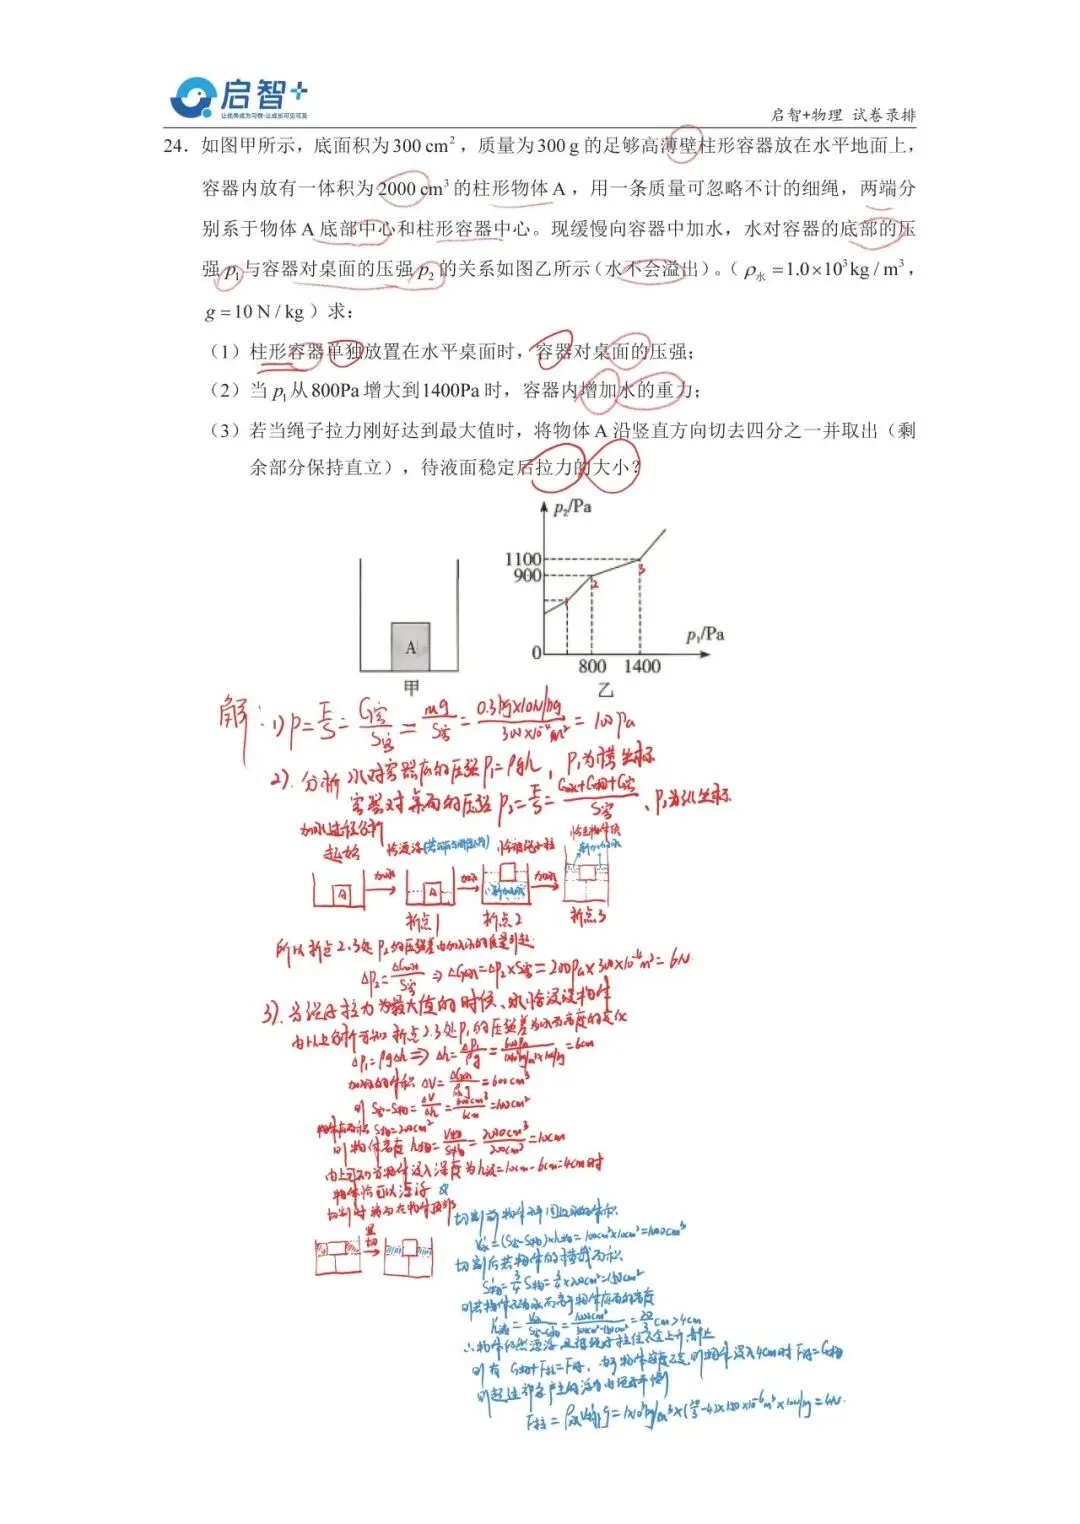 启智+
让优秀成为习惯·让成长可见可及
启智+物理 试卷录排
24．如图甲所示，底面积为300 cm²，质量为300 g的足够高薄壁柱形容器放在水平地面上，
容器内放有一体积为2000 cm³的柱形物体A，用一条质量可忽略不计的细绳，两端分
别系于物体A底部中心和柱形容器中心。现缓慢向容器中加水，水对容器的底部的压
强p₁与容器对桌面的压强p₂的关系如图乙所示（水不会溢出）。（ρ水=1.0×10³kg/m³，
g=10 N/kg）求：
（1）柱形容器单独放置在水平桌面时，容器对桌面的压强；
（2）当p₁从800Pa增大到1400Pa时，容器内增加水的重力；
（3）若当绳子拉力刚好达到最大值时，将物体A沿竖直方向切去四分之一并取出（剩
余部分保持直立），待液面稳定后拉力的大小？
A
甲
p₂/Pa
1100
900
0
800 1400
p₁/Pa
1 2 3
乙
解：1) p=F/S=G容/S容=mg/S容=0.3kg×10N/kg/300×10⁻⁴m²=100Pa
2). 分析 水对容器底的压强p₁=ρgh，p₁为横坐标
容器对桌面的压强p₂=F/S=G水+G物+G容/S容、p₂为纵坐标
加水过程分析
起始
恰漂浮
恰被绳子拉
A 加水 A 加水 加水
折点1 折点2 折点3
所以折点2.3处p₂的压强差由加入水的质量引起
Δp₂=ΔG水/S容⇒ΔG水=Δp₂×S容=200Pa×300×10⁻⁴m²=6N
3). 当绳子拉力为最大值的时候、水恰浸没物体
由以上分析可知 折点2.3处p₁的压强差为水面高度的变化
Δp₁=ρgΔh⇒Δh=Δp₁/ρg=600Pa/1×10³kg/m³×10N/kg=6cm
加水的体积 ΔV=ΔG水/ρ水g=600cm³
则 S容-S物=ΔV/Δh=600cm³/6cm=100cm²
物体底面积 S物=200cm²
则物体高度 h物=V物/S物=2000cm³/200cm²=10cm
由上可知当物体浸入深度为h浸=10cm-6cm=4cm时
物体恰可以漂浮
切割时 水面在物体顶部
切割前物体周围水的体积
V水=(S容-S物)×h物=100cm²×10cm=1000cm³
切割后若物体的横截面积
S物=3/4 S物=3/4×200cm²=150cm²
h浸=V水/S容-S物=1000cm³/300cm²-150cm²=20/3cm>4cm
∴物体仍然漂浮且被绳子拉住不会上升
则有 G物+F拉=F浮，
F拉=ρ水V排g=1×10³kg/m³×(20/3-4)×150×10⁻⁶m³×10N/kg=4N